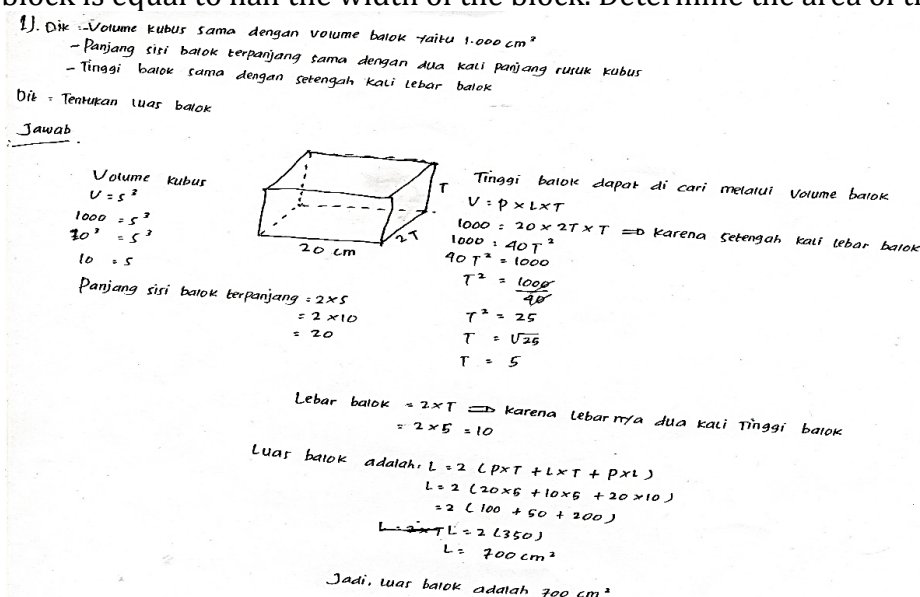 block is equal to half the width of the block. Determine the area of th
1). Dik :- Volume kubus sama dengan volume balok yaitu 1.000 cm³
- Panjang sisi balok terpanjang sama dengan dua kali panjang rusuk kubus
- Tinggi balok sama dengan setengah kali lebar balok
Dit = Tentukan luas balok
Jawab
Volume kubus
V = s³
1000 = s³
10³ = s³
10 = s
Panjang sisi balok terpanjang = 2×s
= 2 × 10
= 20
T
2T
20 cm
Tinggi balok dapat di cari melalui volume balok
V = P × L × T
1000 = 20 × 2T × T ⇒ karena setengah kali lebar balok
1000 = 40T²
40T² = 1000
T² = 1000
40
T² = 25
T = √25
T = 5
Lebar balok = 2×T ⇒ karena lebarnya dua kali Tinggi balok
= 2×5 = 10
Luas balok adalah, L = 2 (P×T + L×T + P×L)
L = 2 (20×5 + 10×5 + 20×10)
= 2 (100 + 50 + 200)
L = 2 (350)
L = 700 cm²
Jadi, luas balok adalah 700 cm²